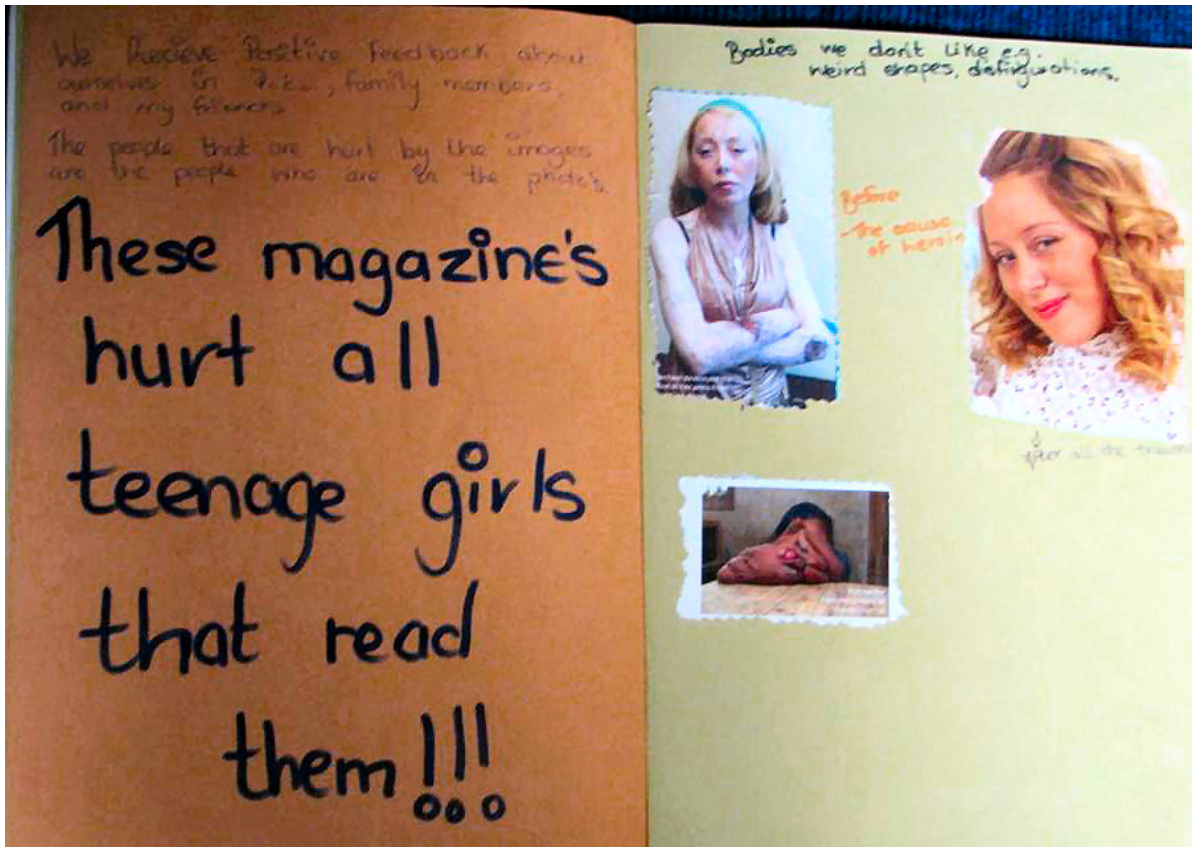 We Recieve Positive Feedback about
ourselves in P.E., family members,
and my friends
The people that are hurt by the images
are the people who are in the photo's.
These magazine's
hurt all
teenage girls
that read
them!!!
Bodies we don't like e.g.
weird shapes, disfigurations.
Before
- The cause
of heroin
After all the trauma